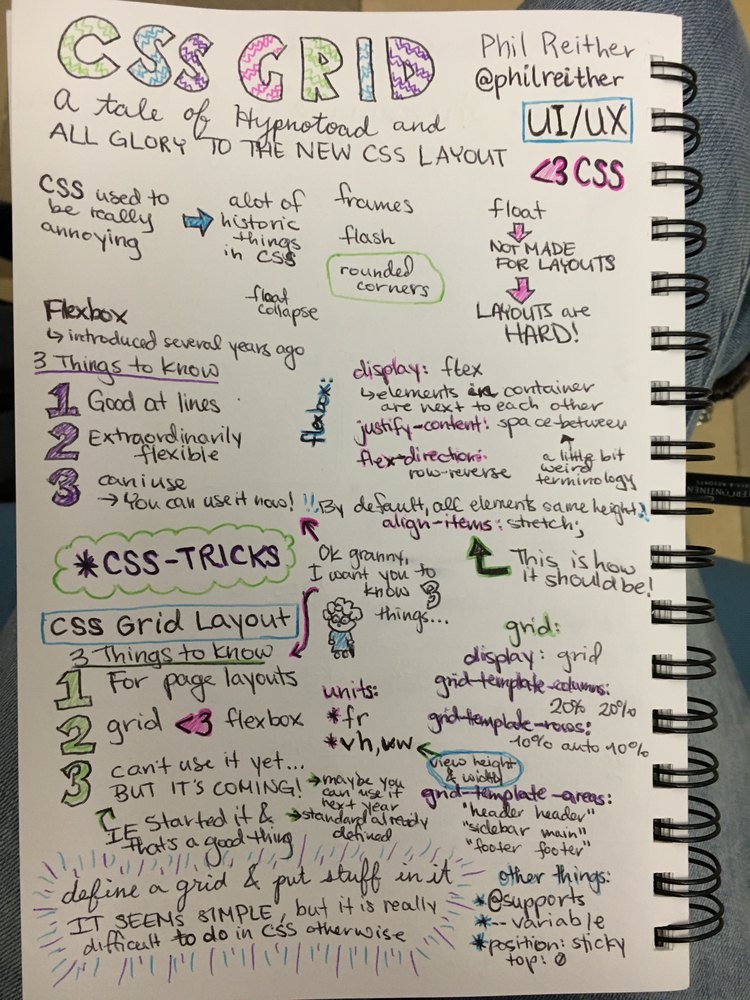 CSS GRID
Phil Reither
@philreither
a tale of Hypnotoad and
ALL GLORY TO THE NEW CSS LAYOUT
UI/UX
<3 CSS
CSS used to
be really
annoying
alot of
historic
things
in CSS
float
collapse
frames
flash
rounded
corners
float
NOT MADE
FOR LAYOUTS
LAYOUTS are
HARD!
Flexbox
↳ introduced several years ago
3 Things to know
1 Good at lines
2 Extraordinarily
flexible
3 can use
→ You can use it now!
flexbox:
display: flex
↳ elements in container
are next to each other
justify-content: space-between
flex-direction:
row-reverse
a little bit
weird
terminology
!! By default, all elements same height!
align-items: stretch;
This is how
it should be!
*CSS-TRICKS
Ok granny,
I want you to
know 3
things...
CSS Grid Layout
3 Things to know
1 For page layouts
2 grid <3 flexbox
3 can't use it yet...
BUT IT'S COMING!
→ maybe you
can use it
next year
→ standard already
defined
IE started it &
that's a good thing
units:
*fr
*vh, vw
view height
& width
grid:
display: grid
grid-template-columns:
20% 20%
grid-template-rows:
10% auto 10%
grid-template-areas:
"header header"
"sidebar main"
"footer footer"
define a grid & put stuff in it
IT SEEMS SIMPLE, but it is really
difficult to do in CSS otherwise
other things:
*@supports
*--variable
*position: sticky
top: 0